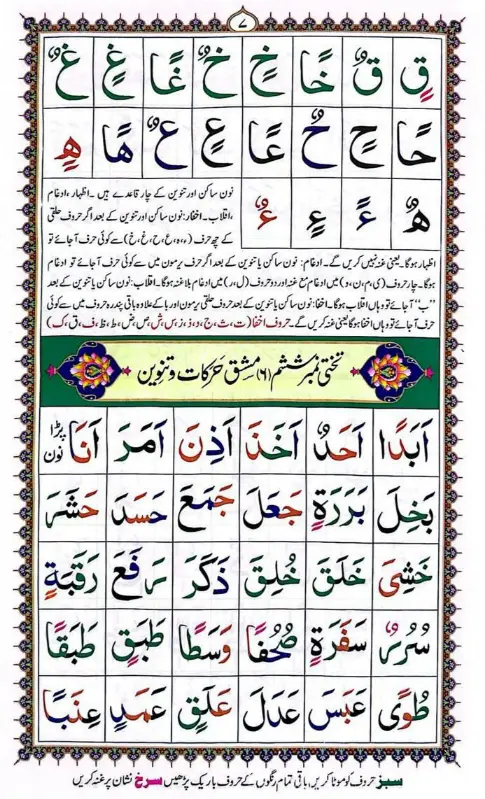 ٧
قٍ قٌ خًا خٍ خٌ غًا غٍ غٌ
حًا حٍ حٌ عًا عٍ عٌ هًا هٍ
هٌ ءً ءٍ ءٌ
نون ساکن اور تنوین کے چار قاعدے ہیں۔ اظہار، ادغام
، اقلاب۔ اخفا: نون ساکن اور تنوین کے بعد اگر حروف حلقی
کے چھ حرف (ء، ہ، ع، ح، غ، خ) سے کوئی حرف آجائے تو
اظہار ہوگا۔ یعنی غنہ نہیں کریں گے۔ ادغام: نون ساکن یا تنوین کے بعد اگر حرف یرمون میں سے کوئی حرف آجائے تو ادغام
ہوگا۔ چار حروف (ی، م، ن، و) میں ادغام مع غنہ اور دو حروف (ل، ر) میں ادغام بلا غنہ ہوگا۔ اقلاب: نون ساکن یا تنوین کے بعد
”ب“ آجائے تو وہاں اقلاب ہوگا۔ اخفا: نون ساکن یا تنوین کے بعد حروف حلقی یرمون اور با کے علاوہ باقی پندرہ حروف میں سے کوئی
حرف آجائے تو وہاں اخفا ہوگا یعنی غنہ کریں گے۔ حروف اخفا (ت، ث، ج، د، ذ، ز، س، ش، ص، ض، ط، ظ، ف، ق، ک)
تختی نمبر ششم (۶) مشق حرکات و تنوین
اَبَدًا اَحَدٌ اَخَذَ اَذِنَ اَمَرَ اَنَا پڑا نون
بَخِلَ بَرَرَةٍ جَعَلَ جَمَعَ حَسَدَ حَشَرَ
خَشِىَ خَلَقَ خُلِقَ ذَكَرَ رَفَعَ رَقَبَةٍ
سُرُرٌ سَفَرَةٍ صُحُفًا وَسَطًا طَبَقٍ طَبَقًا
طُوًى عَبَسَ عَدَلَ عَلَقٍ عَمَدٍ عِنَبًا
سبز حروف کو موٹا کریں، باقی تمام رنگوں کے حروف باریک پڑھیں سرخ نشان پر غنہ کریں